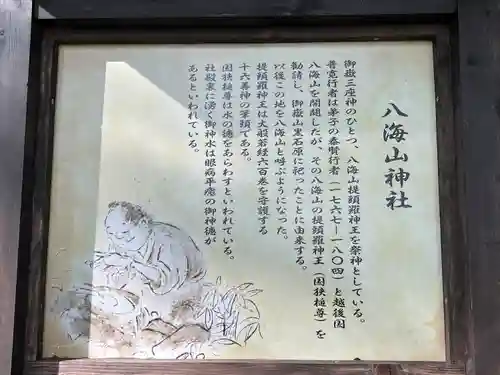 八海山神社
御嶽三座神のひとつ、八海山提頭羅神王を祭神としている。
普寛行者は弟子の泰賢行者（一七六七―一八〇四）と越後国
八海山を開闢したが、その八海山の提頭羅神王（国狭槌尊）を
勧請し、御嶽山黒石原に祀ったことに由来する。
以後この地を八海山と呼ぶようになった。
提頭羅神王は大般若経六百巻を守護する
十六善神の筆頭である。
国狭槌尊は水の徳をあらわすといわれている。
社殿裏に湧く御神水は眼病平癒の御神徳が
あるといわれている。